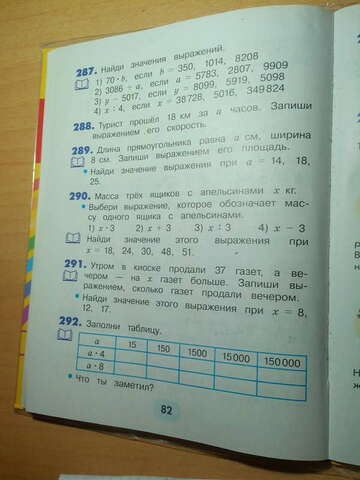 287. Найди значения выражений.
1) 70 · b, если b = 350, 1014, 8208
2) 3086 + a, если a = 5783, 2807, 9909
3) y − 5017, если y = 8099, 5919, 5098
4) x : 4, если x = 38728, 5016, 349824
288. Турист прошёл 18 км за a часов. Запиши
выражением его скорость.
289. Длина прямоугольника равна a см, ширина
8 см. Запиши выражением его площадь.
• Найди значение выражения при a = 14, 18,
25.
290. Масса трёх ящиков с апельсинами x кг.
• Выбери выражение, которое обозначает мас-
су одного ящика с апельсинами.
1) x · 3 2) x + 3 3) x : 3 4) x − 3
Найди значение этого выражения при
x = 18, 24, 30, 48, 51.
291. Утром в киоске продали 37 газет, а ве-
чером — на x газет больше. Запиши вы-
ражением, сколько газет продали вечером.
• Найди значение этого выражения при x = 8,
12, 17.
292. Заполни таблицу.
a 15 150 1500 15000 150000
a · 4
a · 8
• Что ты заметил?
82